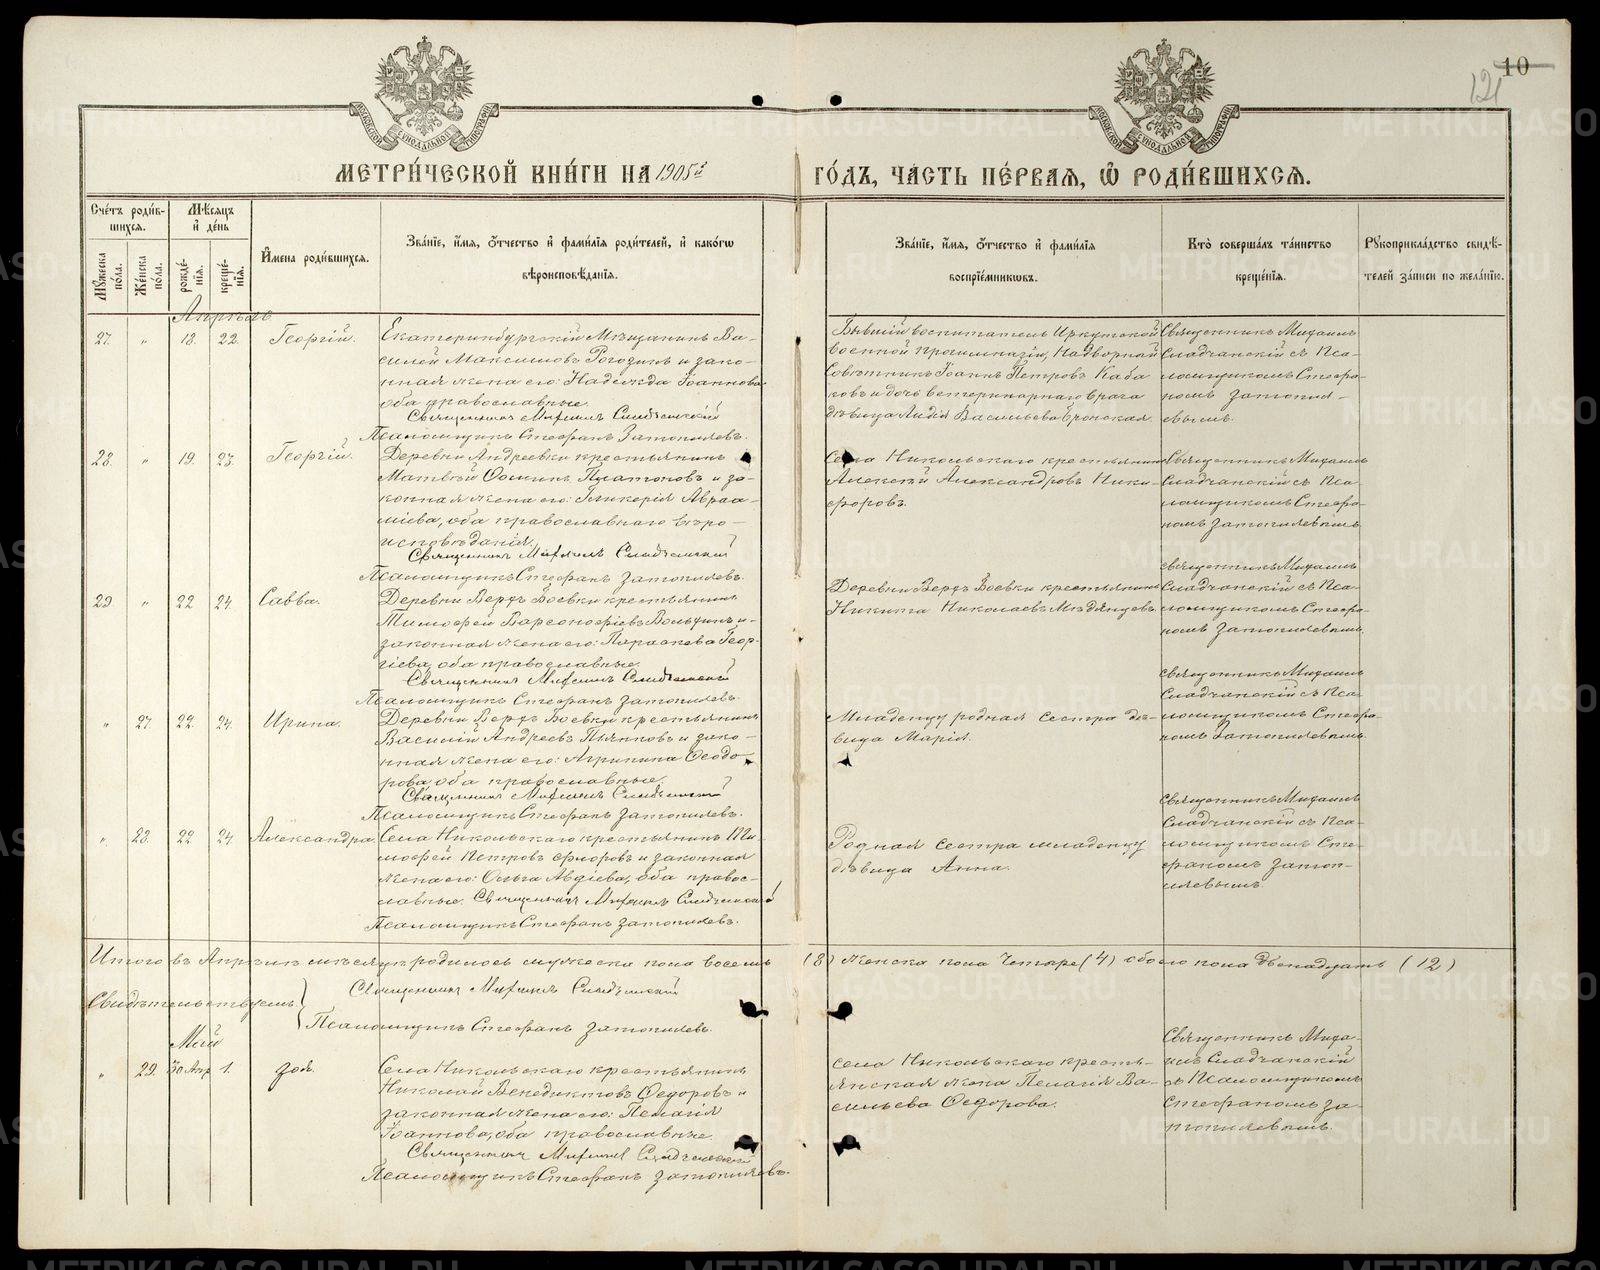 10
121
МЕТРИ́ЧЕСКОЙ КНИ́ГИ НА 1905й ГО́ДЪ, ЧА́СТЬ ПЕ́РВАЯ, Ѡ РОДИ́ВШИХСЯ.
Сче́тъ роди́вшихся.
Мꙋ́жеска по́ла.
Же́нска по́ла.
Мѣ́сяцъ и҆ де́нь
рожде́нїѧ.
креще́нїѧ.
И҆мена роди́вшихся.
Зва́нїе, и҆́мѧ, ѻ҆́тчество и҆ фами́лїѧ роди́телей, и҆ како́гѡ
вѣроисповѣ́данїѧ.
Зва́нїе, и҆́мѧ, ѻ҆́тчество и҆ фами́лїѧ
воспрїе́мникѡвъ.
Кто̀ соверша́лъ та́инство
креще́нїѧ.
Рꙋкоприкла́дство свидѣ́-
телей за́писи по жела́нїю.
Апрѣль
27. " 18. 22. Георгій.
Екатеринбургскій Мѣщанинъ Ва-
силій Максимовъ Рогозинъ и зако-
нная жена его: Надежда Іоаннова
оба православные.
Священникъ Михаилъ
Псаломщикъ Стефанъ Затопляевъ.
Бывшій воспитатель Иркутской
военной прогимназіи, Надворный
Совѣтникъ Іоаннъ Петровъ Каба
ковъ и дочь ветеринарнаго врача
дѣвица Лидія Васильева
Священникъ Михаилъ
съ Пса-
ломщикомъ Стефа-
номъ Затопля-
евымъ.
28. " 19. 23. Георгій.
Деревни Андреевки крестьянинъ
Матвѣй Ѳоминъ Платоновъ и за-
конная жена его: Гликерія Авраа-
міева, оба православнаго вѣро-
исповѣданія.
Священникъ Михаилъ
Псаломщикъ Стефанъ Затопляевъ.
Села Никольскаго крестьянинъ
Алексѣй Александровъ Ники-
форовъ.
Священникъ Михаилъ
съ Пса-
ломщикомъ Стефа-
номъ Затопляевымъ
29 " 22 24. Савва.
Деревни Верхъ Боевки крестьянинъ
Тимофей Варсонофіевъ и
законная жена его: Параскева Геор-
гіева, оба православные.
Священникъ Михаилъ
Псаломщикъ Стефанъ Затопляевъ.
Деревни Верхъ Боевки крестьянинъ
Никита Николаевъ Мѣдянцевъ.
Священникъ Михаилъ
съ Пса-
ломщикомъ Стефа-
номъ Затопляевымъ.
" 27. 22. 24. Ирина.
Деревни Верхъ Боевки крестьянинъ
Василій Андреевъ Пьянковъ и зако-
нная жена его: Агрипина Ѳеодо-
рова, оба православные.
Священникъ Михаилъ
Псаломщикъ Стефанъ Затопляевъ.
Младенцу родная сестра дѣ-
вица Марія.
Священникъ Михаилъ
съ Пса-
ломщикомъ Стефа-
номъ Затопляевымъ.
" 28. 22 24. Александра.
Села Никольскаго крестьянинъ Ти-
мофей Петровъ Флоровъ и законная
жена его: Ольга Авдіева, оба правос-
лавные. Священникъ Михаилъ
Псаломщикъ Стефанъ Затопляевъ.
Родная сестра младенцу
дѣвица Анна.
Священникъ Михаилъ
съ Пса-
ломщикомъ Сте-
фаномъ Затоп-
ляевымъ.
Итого въ Апрѣлѣ мѣсяцѣ родилось мужеска пола восемь (8) женска пола четыре (4) обоего пола двѣнадцать (12)
Свидѣтельствуемъ:
Священникъ Михаилъ
Псаломщикъ Стефанъ Затопляевъ.
Май
" 29. 30 Апр 1. Зоя.
Села Никольскаго крестьянинъ
Николай Венедиктовъ Ѳедоровъ и
законная жена его: Пелагія
Іоаннова, оба православные.
Священникъ Михаилъ
Псаломщикъ Стефанъ Затопляевъ.
Села Никольскаго кресть-
янская жена Пелагія Ва-
сильева Ѳедорова.
Священникъ Миха-
илъ
съ Псаломщикомъ
Стефаномъ За-
топляевымъ.
METRIKI.GASO-URAL.RU